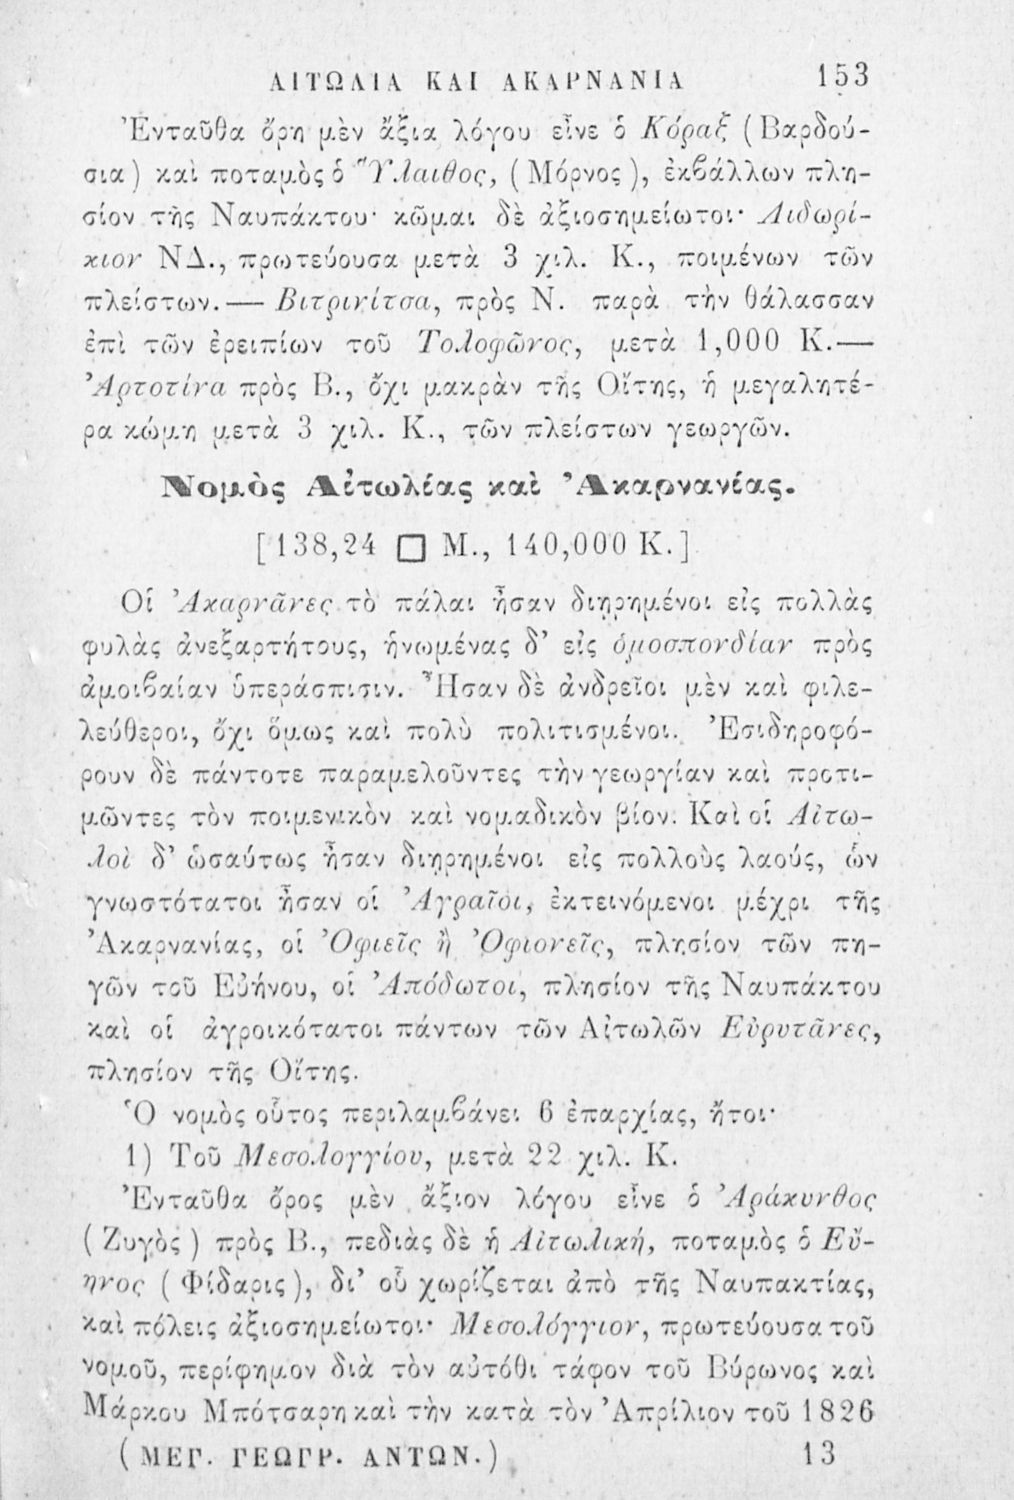 ΑΙΤΩΛΙΑ ΚΑΙ ΑΚΑΡΝΑΝΙΑ 153
Ἐνταῦθα ὄρη μὲν ἄξια λόγου εἶνε ὁ Κόραξ (Βαρδού-
σια) καὶ ποταμὸς ὁ Ὕλαιθος, (Μόρνος), ἐκβάλλων πλη-
σίον τῆς Ναυπάκτου· κῶμαι δὲ ἀξιοσημείωτοι· Λιδωρί-
κιον ΝΔ., πρωτεύουσα μετὰ 3 χιλ. Κ., ποιμένων τῶν
πλείστων.— Βιτρινίτσα, πρὸς Ν. παρὰ τὴν θάλασσαν
ἐπὶ τῶν ἐρειπίων τοῦ Τολοφῶνος, μετὰ 1,000 Κ.—
Ἀρτοτίνα πρὸς Β., ὄχι μακρὰν τῆς Οἴτης, ἡ μεγαλητέ-
ρα κώμη μετὰ 3 χιλ. Κ., τῶν πλείστων γεωργῶν.
Νομὸς Αἰτωλίας καὶ Ἀκαρνανίας.
[138,24 □ Μ., 140,000 Κ.]
Οἱ Ἀκαρνᾶνες τὸ πάλαι ἦσαν διῃρημένοι εἰς πολλὰς
φυλὰς ἀνεξαρτήτους, ἡνωμένας δ' εἰς ὁμοσπονδίαν πρὸς
ἀμοιβαίαν ὑπεράσπισιν. Ἦσαν δὲ ἀνδρεῖοι μὲν καὶ φιλε-
λεύθεροι, ὄχι ὅμως καὶ πολὺ πολιτισμένοι. Ἐσιδηροφό-
ρουν δὲ πάντοτε παραμελοῦντες τὴν γεωργίαν καὶ προτι-
μῶντες τὸν ποιμενικὸν καὶ νομαδικὸν βίον. Καὶ οἱ Αἰτω-
λοὶ δ' ὡσαύτως ἦσαν διῃρημένοι εἰς πολλοὺς λαούς, ὧν
γνωστότατοι ἦσαν οἱ Ἀγραῖοι, ἐκτεινόμενοι μέχρι τῆς
Ἀκαρνανίας, οἱ Ὀφιεῖς ἢ Ὀφιονεῖς, πλησίον τῶν πη-
γῶν τοῦ Εὐήνου, οἱ Ἀπόδωτοι, πλησίον τῆς Ναυπάκτου
καὶ οἱ ἀγροικότατοι πάντων τῶν Αἰτωλῶν Εὐρυτᾶνες,
πλησίον τῆς Οἴτης.
Ὁ νομὸς οὗτος περιλαμβάνει 6 ἐπαρχίας, ἤτοι·
1) Τοῦ Μεσολογγίου, μετὰ 22 χιλ. Κ.
Ἐνταῦθα ὄρος μὲν ἄξιον λόγου εἶνε ὁ Ἀράκυνθος
(Ζυγὸς) πρὸς Β., πεδιὰς δὲ ἡ Αἰτωλική, ποταμὸς ὁ Εὔ-
ηνος (Φίδαρις), δι' οὗ χωρίζεται ἀπὸ τῆς Ναυπακτίας,
καὶ πόλεις ἀξιοσημείωτοι· Μεσολόγγιον, πρωτεύουσα τοῦ
νομοῦ, περίφημον διὰ τὸν αὐτόθι τάφον τοῦ Βύρωνος καὶ
Μάρκου Μπότσαρη καὶ τὴν κατὰ τὸν Ἀπρίλιον τοῦ 1826
(ΜΕΓ. ΓΕΩΓΡ. ΑΝΤΩΝ.) 13